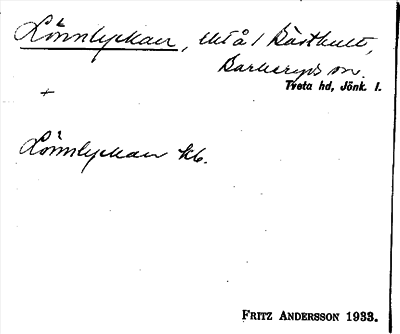 Lönnlyckan, utå / Bästhult,
Barkeryds sn.
Tveta hd, Jönk. l.
+
Lönnlyckan kb.
FRITZ ANDERSSON 1933.